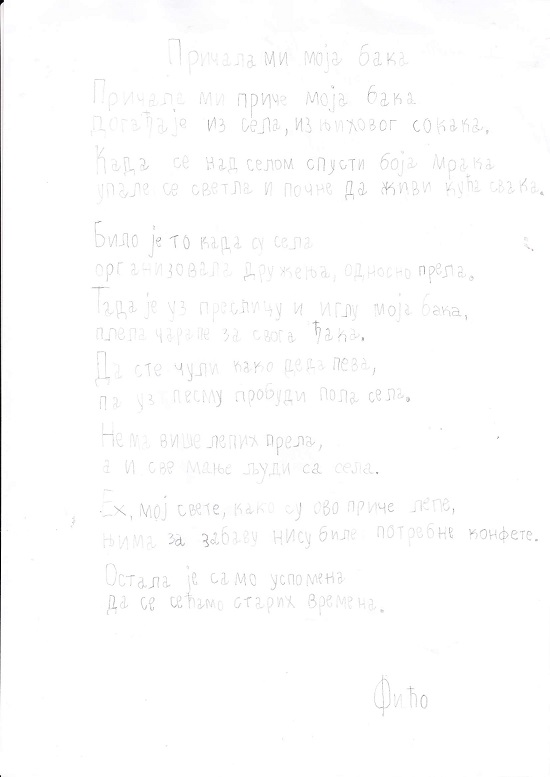 Причала ми моја бака
Причала ми приче моја бака
догађаје из села, из њиховог сокака,
Када се над селом спусти боја мрака
упале се светла и почне да живи кућа свака.
Било је то када су села
организовала дружења, односно прела.
Тада је уз преслицу и иглу моја бака,
плела чарапе за свога ђака.
Да сте чули како деда пева,
па уз песму пробуди пола села.
Нема више лепих прела,
а и све мање људи са села.
Ех, мој свете, како су ово приче лепе,
њима за забаву нису биле потребне конфете.
Остала је само успомена
да се сећамо старих времена.
Фићо